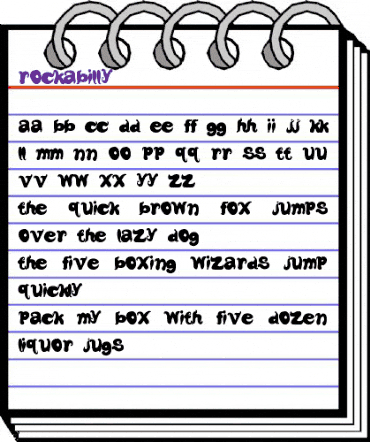 rockabilly
aa bb cc dd ee ff gg hh ii jj kk
ll mm nn oo pp qq rr ss tt uu
vv ww xx yy zz
the quick brown fox jumps
over the lazy dog
the five boxing wizards jump
quickly
pack my box with five dozen
liquor jugs